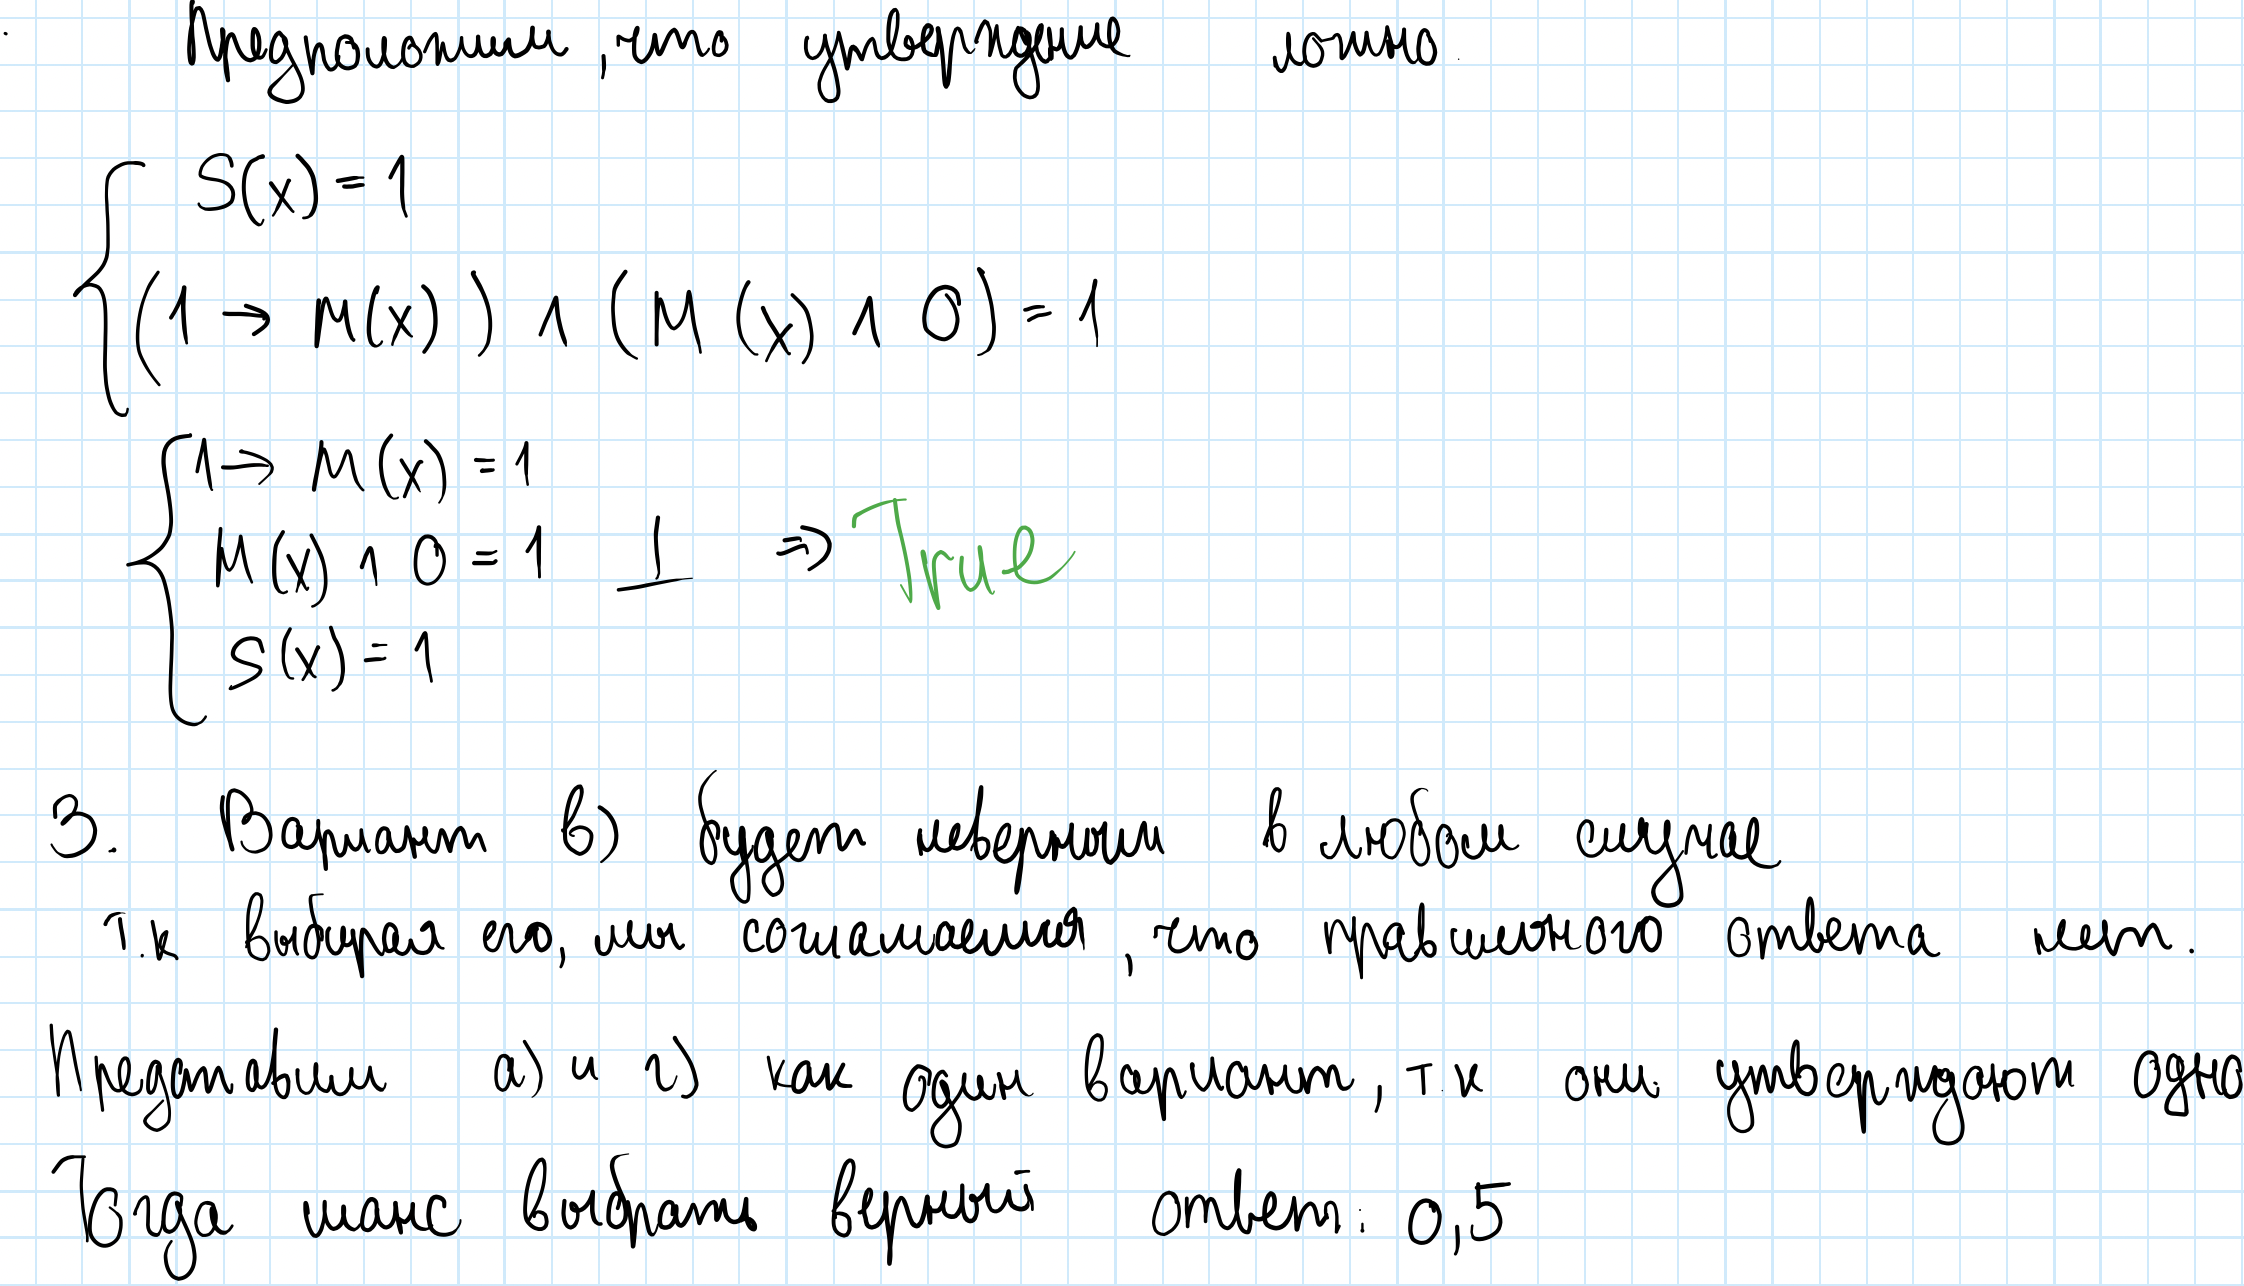 Предположим, что утверждение ложно.
S(x) = 1
(1 → M(x)) ∧ (M(x) ∧ 0) = 1
1 → M(x) = 1
M(x) ∧ 0 = 1 ⊥ ⇒ True
S(x) = 1
3. Вариант в) будет неверным в любом случае
т.к выбирая его, мы соглашаемся, что правильного ответа нет.
Представим а) и г) как один вариант, т.к они утверждают одно
Тогда шанс выбрать верный ответ: 0,5